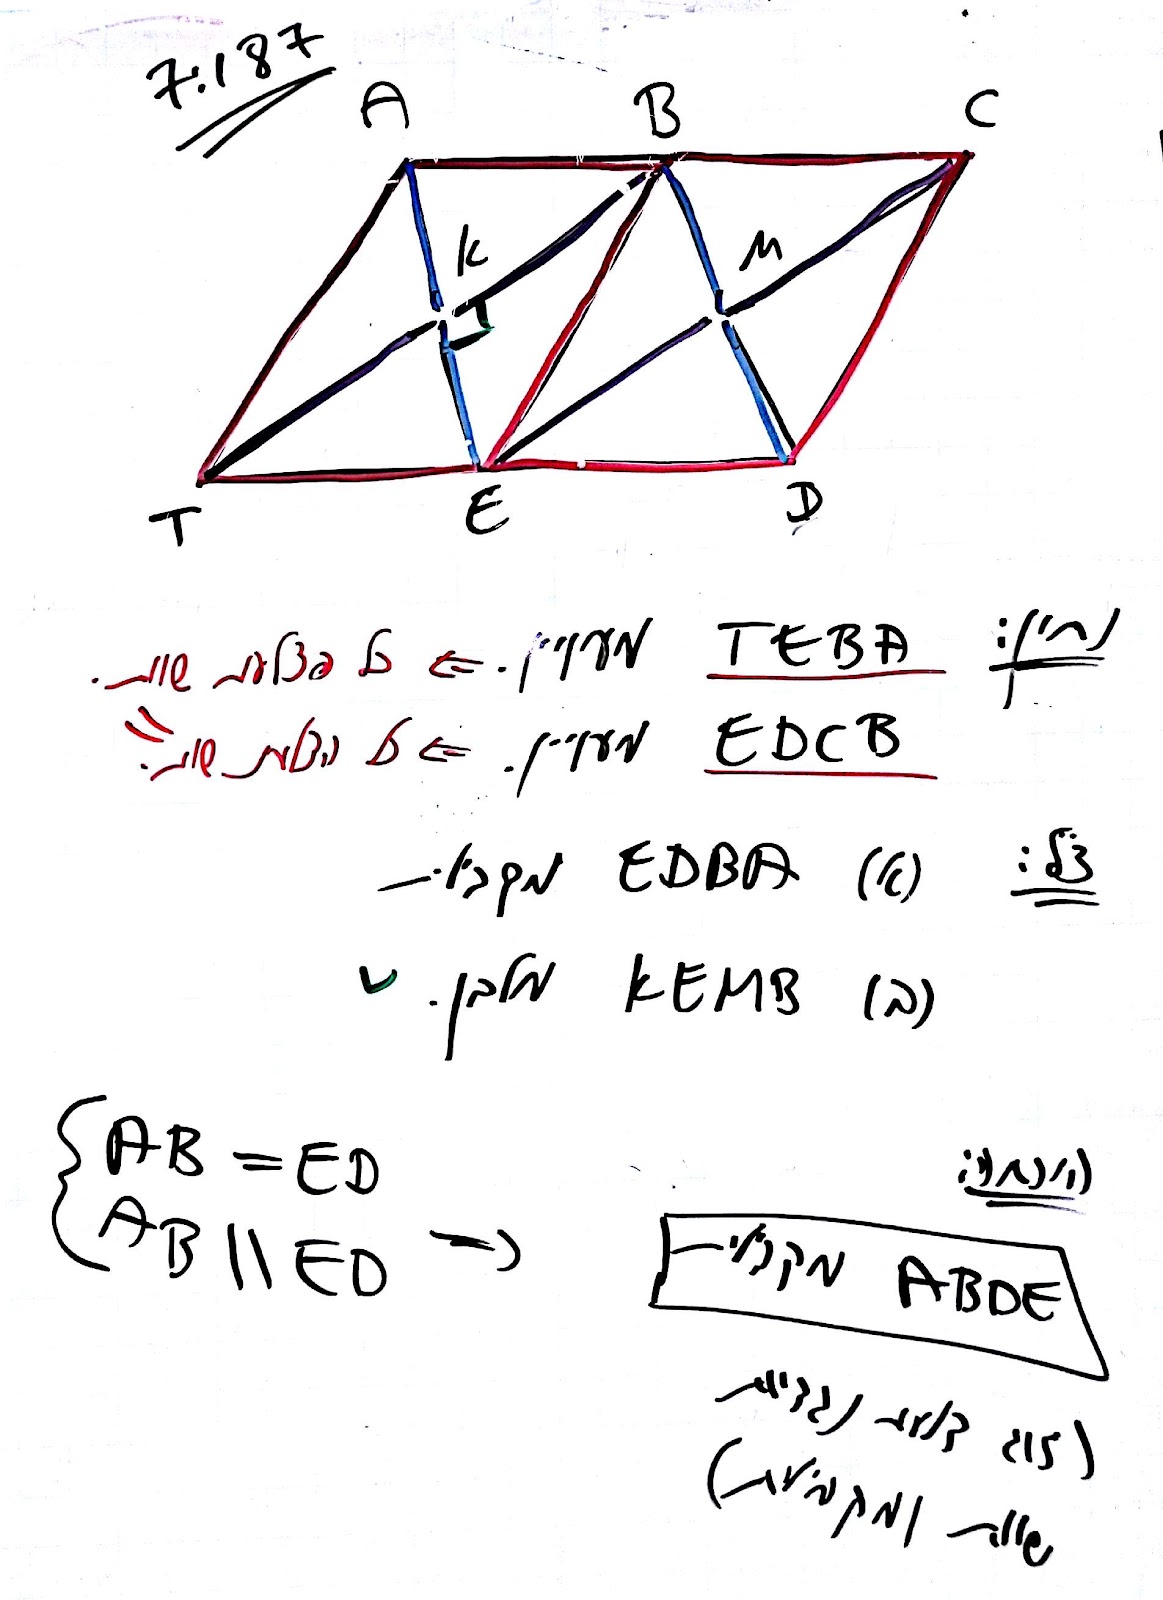 7.187
A B C
K M
T E D
נתון: TEBA מעויין. ⇐ כל הצלעות שוות.
EDCB מעויין. ⇐ כל הצלעות שוות.
צ"ל: (א) EDBA מקבילית
(ב) KEMB מלבן. ✓
הוכחה:
{ AB = ED
AB || ED →
ABDE מקבילית
(זוג צלעות נגדיות
שוות ומקבילות)